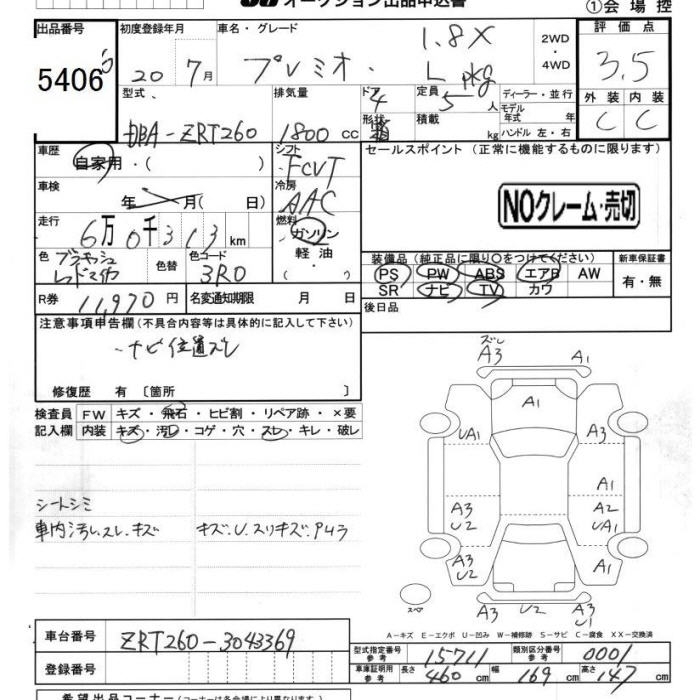 オークション出品申込書
①会場控
出品番号 初度登録年月 車名・グレード 評価点
5406 20 7月 プレミオ 1.8X L pkg 2WD・4WD 3.5
型式 排気量 ドア 4 定員 5人 ディーラー・並行 外装 内装
DBA-ZRT260 1800cc 形状 積載 kg モデル年式 年 C C
ハンドル 左・右
車歴 シフト セールスポイント（正常に機能するものに限る）
自家用・（ ） FCVT
車検 冷房
年 月（ 日） AAC NOクレーム・売切
走行 燃料
6万0千313km ガソリン
軽油
（ ）
色 色替 色コード 装備品（純正品に限り○をつけてください） 新車保証書
3R0 PS PW ABS エアB AW 有・無
SR ナビ TV カワ
R券 11,970円 名変通知期限 月 日 後日品
注意事項申告欄（不具合内容等は具体的に記入して下さい）
・ナビ位置ズレ
修復歴 有〔箇所 〕
検査員 FW キズ・飛石・ヒビ割・リペア跡・×要
記入欄 内装 キズ・汚レ・コゲ・穴・スレ・キレ・破レ
シートシミ
車内汚レ.スレ.キズ キズ.U.スリキズ.P4ラ
ズレ
A3 A1
A1
UA1 A3
A1
A3 A2
U2 UA1
A3 A1
U2
スペア U2 A3
U1
A-キズ E-エクボ U-凹み W-補修跡 S-サビ C-腐食 XX-交換済
車台番号 ZRT260-3043369
型式指定番号 参考 15711 類別区分番号 参考 0001
登録番号
車庫証明用 参考 長さ 460cm 幅 169cm 高さ 147cm
希望出品コーナー（コーナーは各会場により異なります）